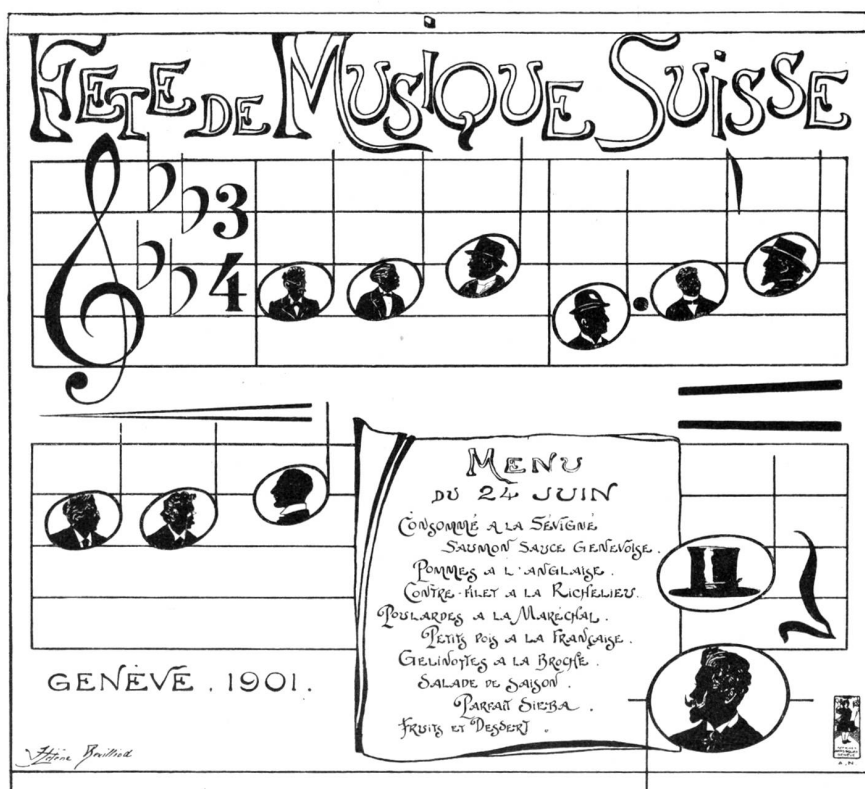 FÊTE DE MUSIQUE SUISSE
3
4
MENU
DU 24 JUIN
CONSOMMÉ A LA SÉVIGNÉ
SAUMON SAUCE GENEVOISE.
POMMES A L'ANGLAISE.
CONTRE-FILET A LA RICHELIEU.
POULARDES A LA MARÉCHAL.
PETITS POIS A LA FRANÇAISE.
GELINOTTES A LA BROCHE.
SALADE DE SAISON.
PARFAIT SIEBA.
FRUITS ET DESSERT.
GENÈVE. 1901.
Hélène Bovilliod